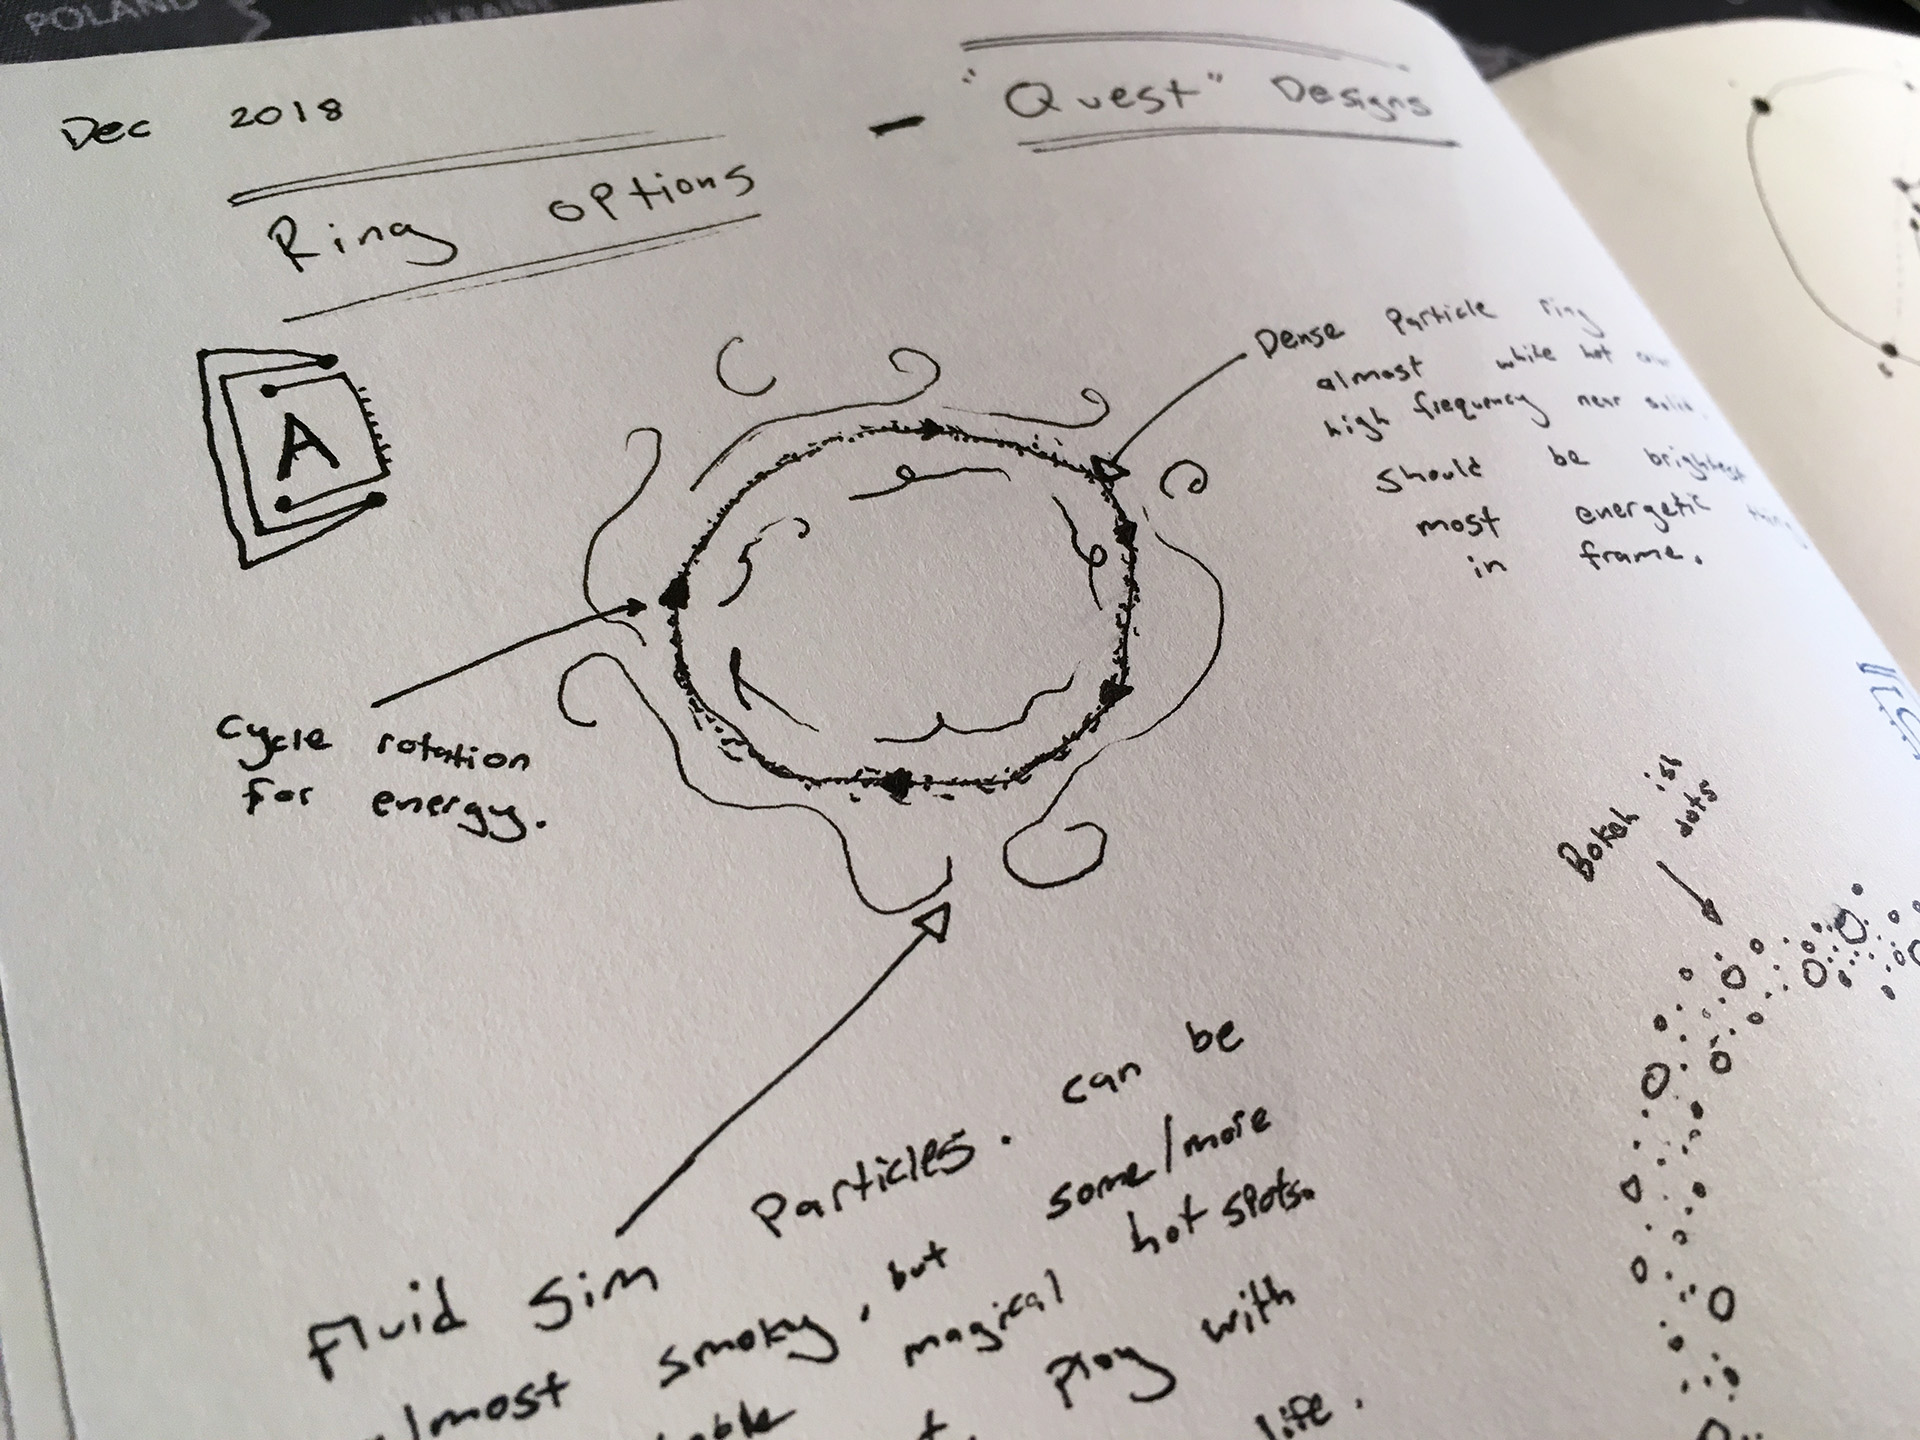 POLAND
UKRAINE
Dec 2018
Ring options - "Quest" Designs
A
Dense Particle ring
almost white hot
high frequency near solid.
should be brightest
most energetic thing
in frame.
Cycle rotation
for energy.
Bokeh ish
dots
Fluid Sim Particles. can be
almost smoky, but some/more
magical hot spots.
play with
life.